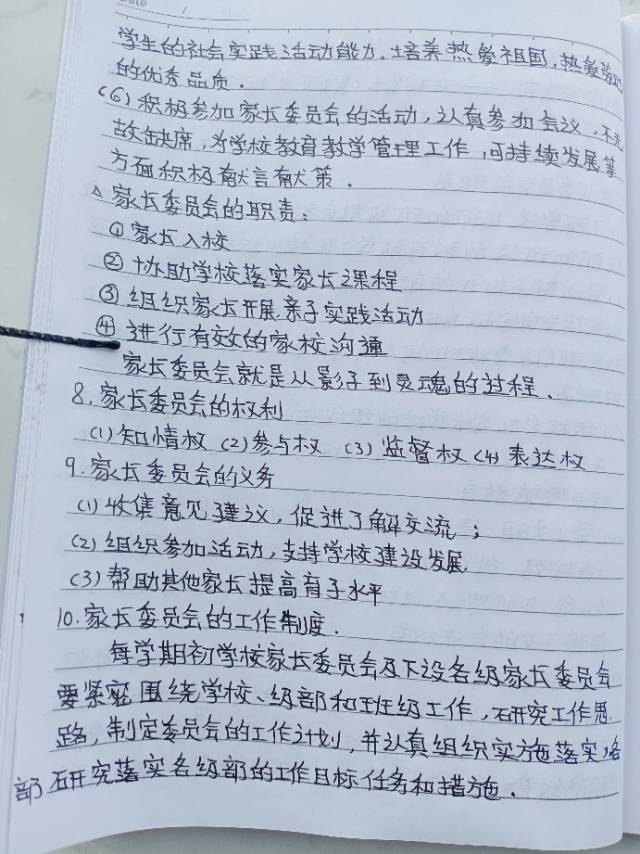 Date /
学生的社会实践活动能力.培养热爱祖国,热爱劳动
的优秀品质.
(6)积极参加家长委员会的活动,认真参加会议,不无
故缺席,为学校教育教学管理工作,可持续发展等
方面积极献言献策.
△家长委员会的职责:
①家长入校
②协助学校落实家长课程
③组织家长开展亲子实践活动
④进行有效的家校沟通
家长委员会就是从影子到灵魂的过程.
8.家长委员会的权利
(1)知情权 (2)参与权 (3)监督权 (4)表达权
9.家长委员会的义务
(1)收集意见建议,促进了解交流;
(2)组织参加活动,支持学校建设发展.
(3)帮助其他家长提高育子水平
10.家长委员会的工作制度.
每学期初学校家长委员会及下设各级家长委员会
要紧密围绕学校、级部和班级工作,研究工作思
路,制定委员会的工作计划,并认真组织实施落实,各
部研究落实各级部的工作目标任务和措施.